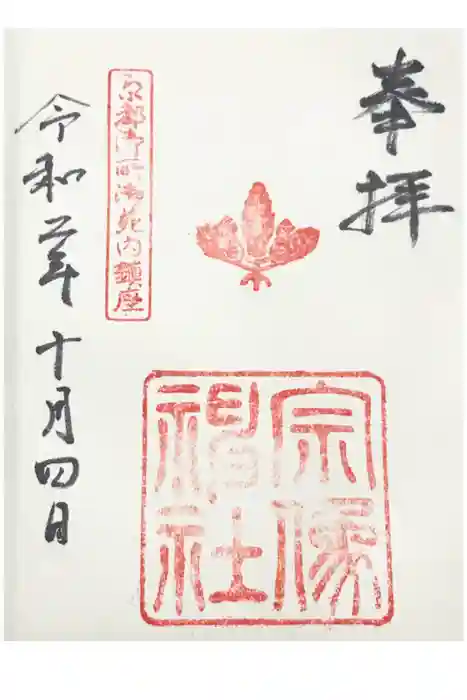 奉拝
京都御所御苑内鎮座
宗像
神社
令和二年十月四日